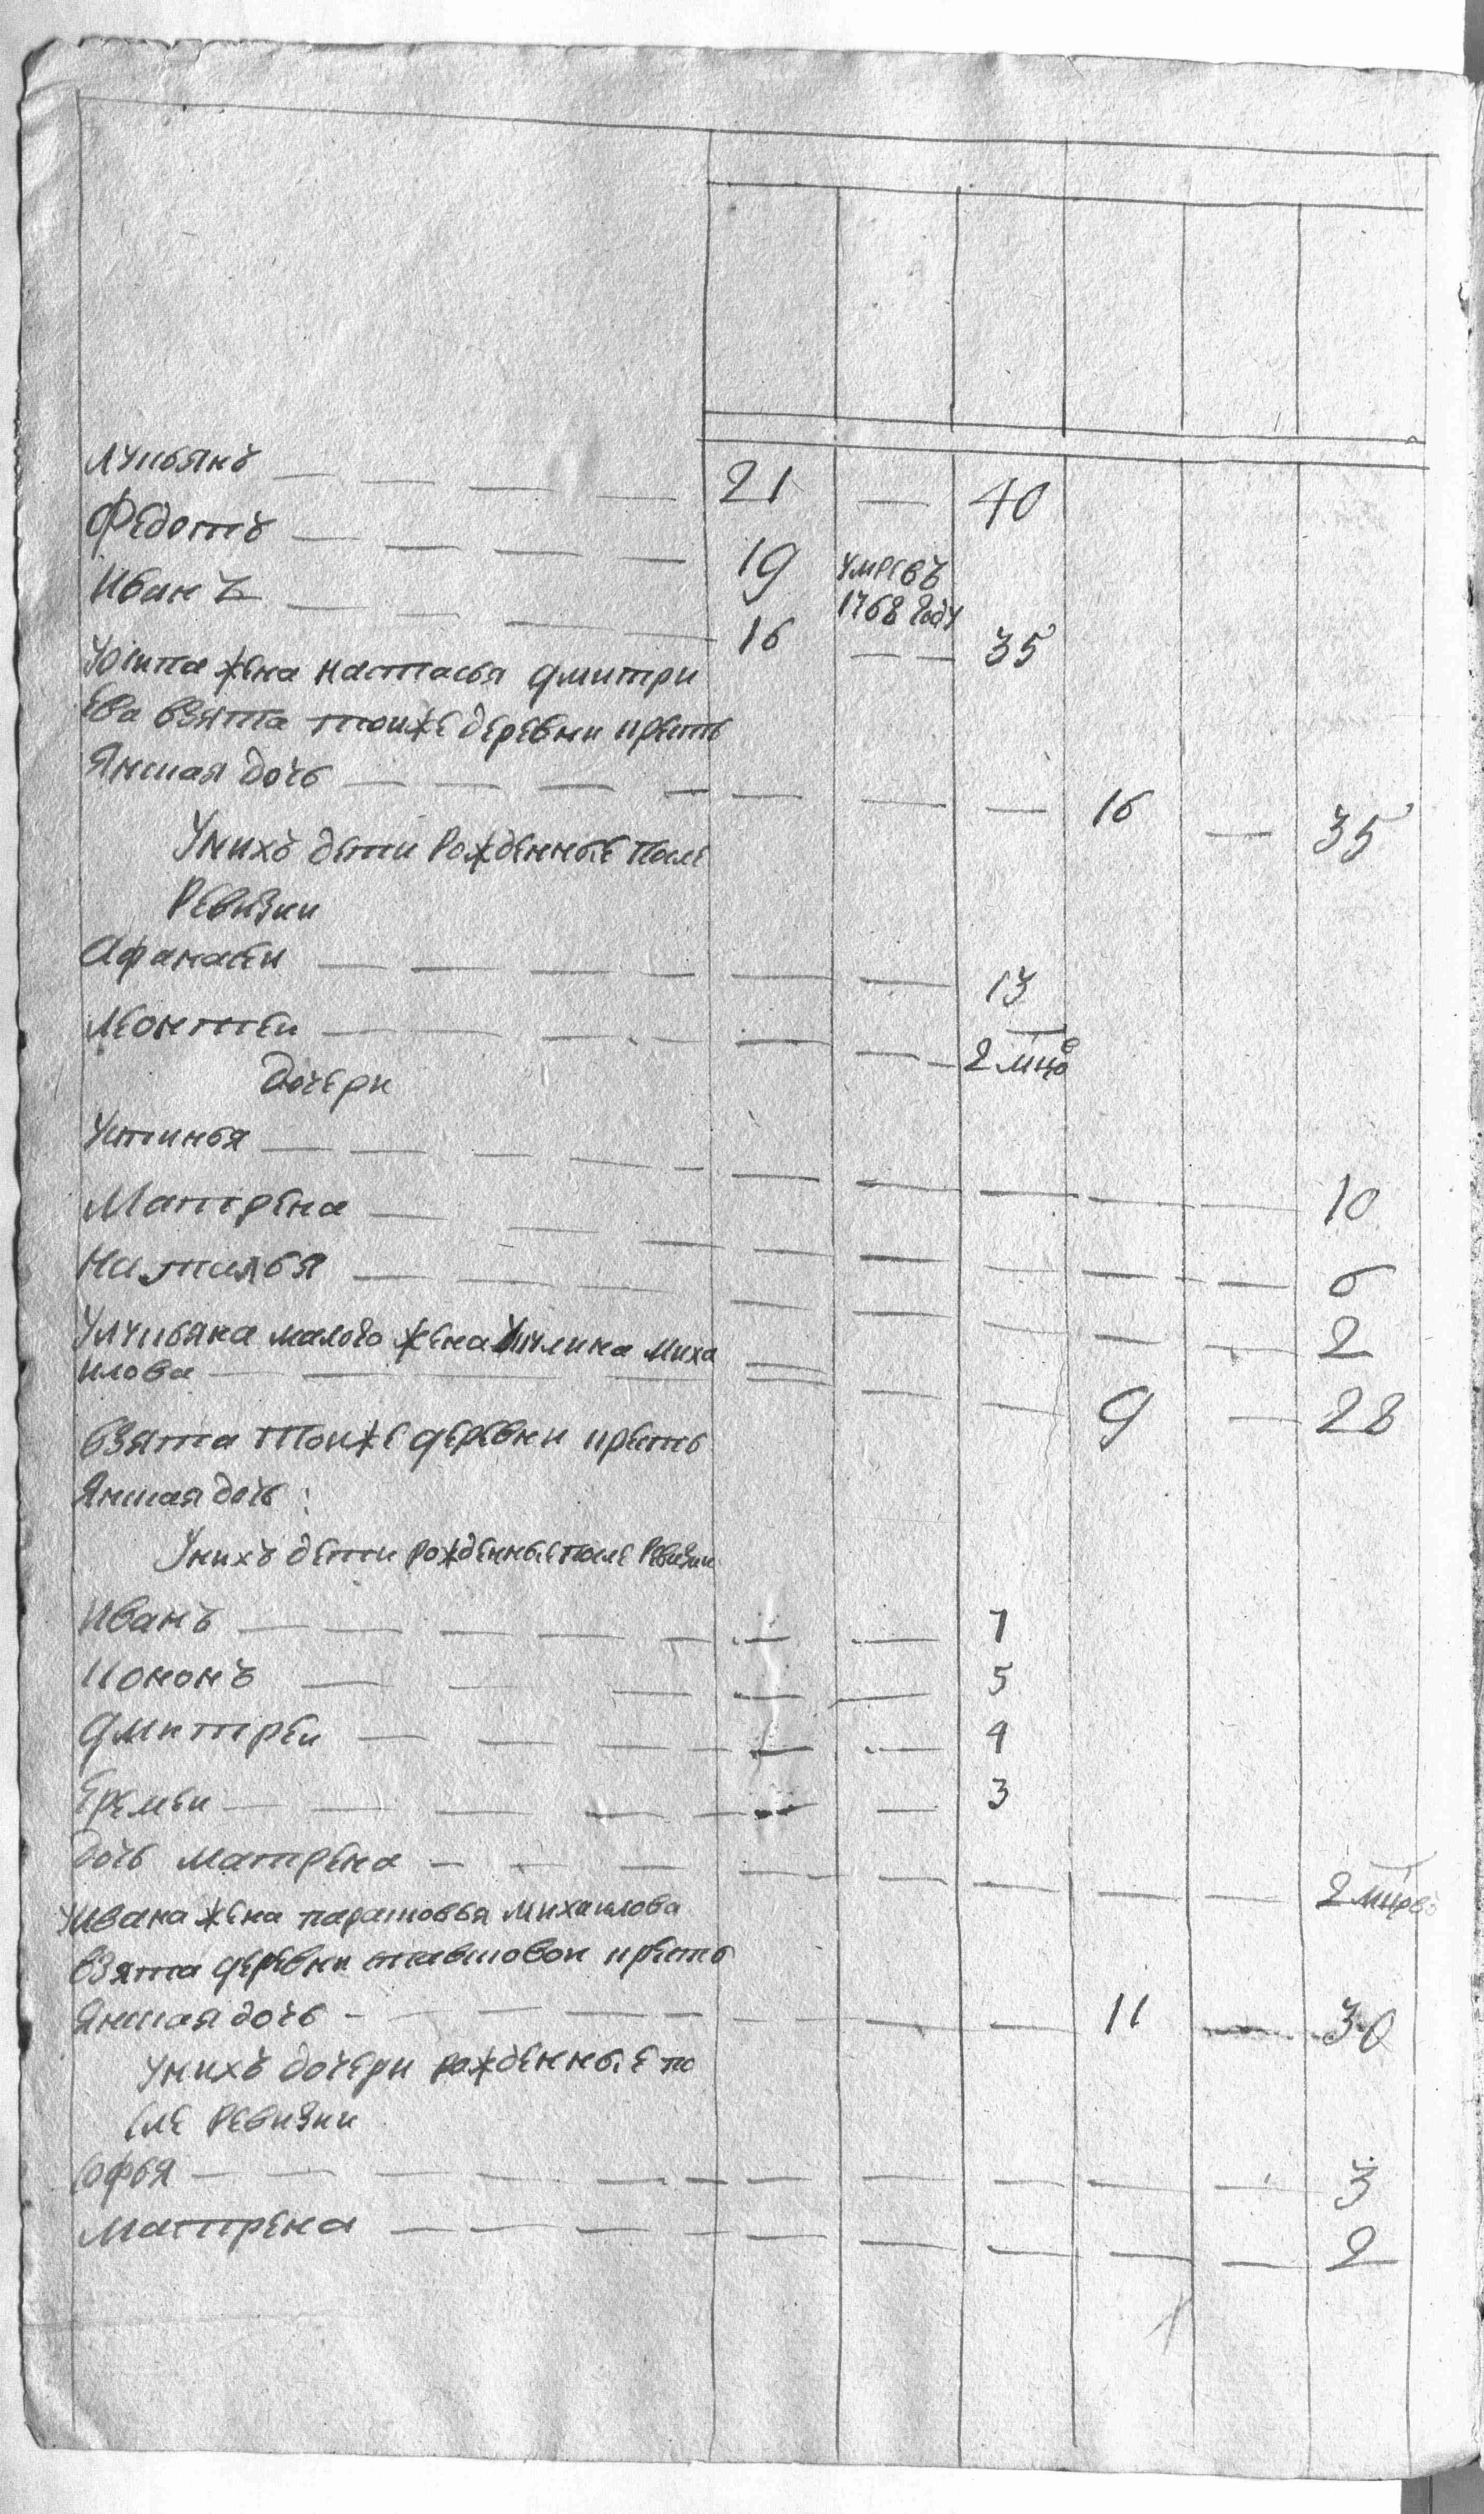 Лукьянъ 21 — 40
Федотъ 19 умревъ 1768 году
Иванъ 16 — 35
жена настасья дмитри
ева взята тоиже деревни кресть
янская дочь — — — 16 — 35
Унихъ дети рожденные после
Ревизии
Афанасеи — — 13
Леонтеи — — 2 мцо
дочери
Устинья — — — — — 10
Матрена — — — — — 6
Наталья — — — — — 2
Улукьяна малого жена Акулина миха
илова — — — 9 — 28
взята тоиже деревни кресть
янская дочь:
Унихъ дети рожденные после Ревизии
Иванъ — — 7
Кононъ — — 5
Дмитреи — — 4
Еремеи — — 3
дочь матрена — — — — — 2 мцовъ
Уивана жена парасковья михаилова
взята деревни кресть
янская дочь — — — 11 — 30
Унихъ дочери рожденные по
сле Ревизии
Софья — — — — — 3
матрена — — — — — 2